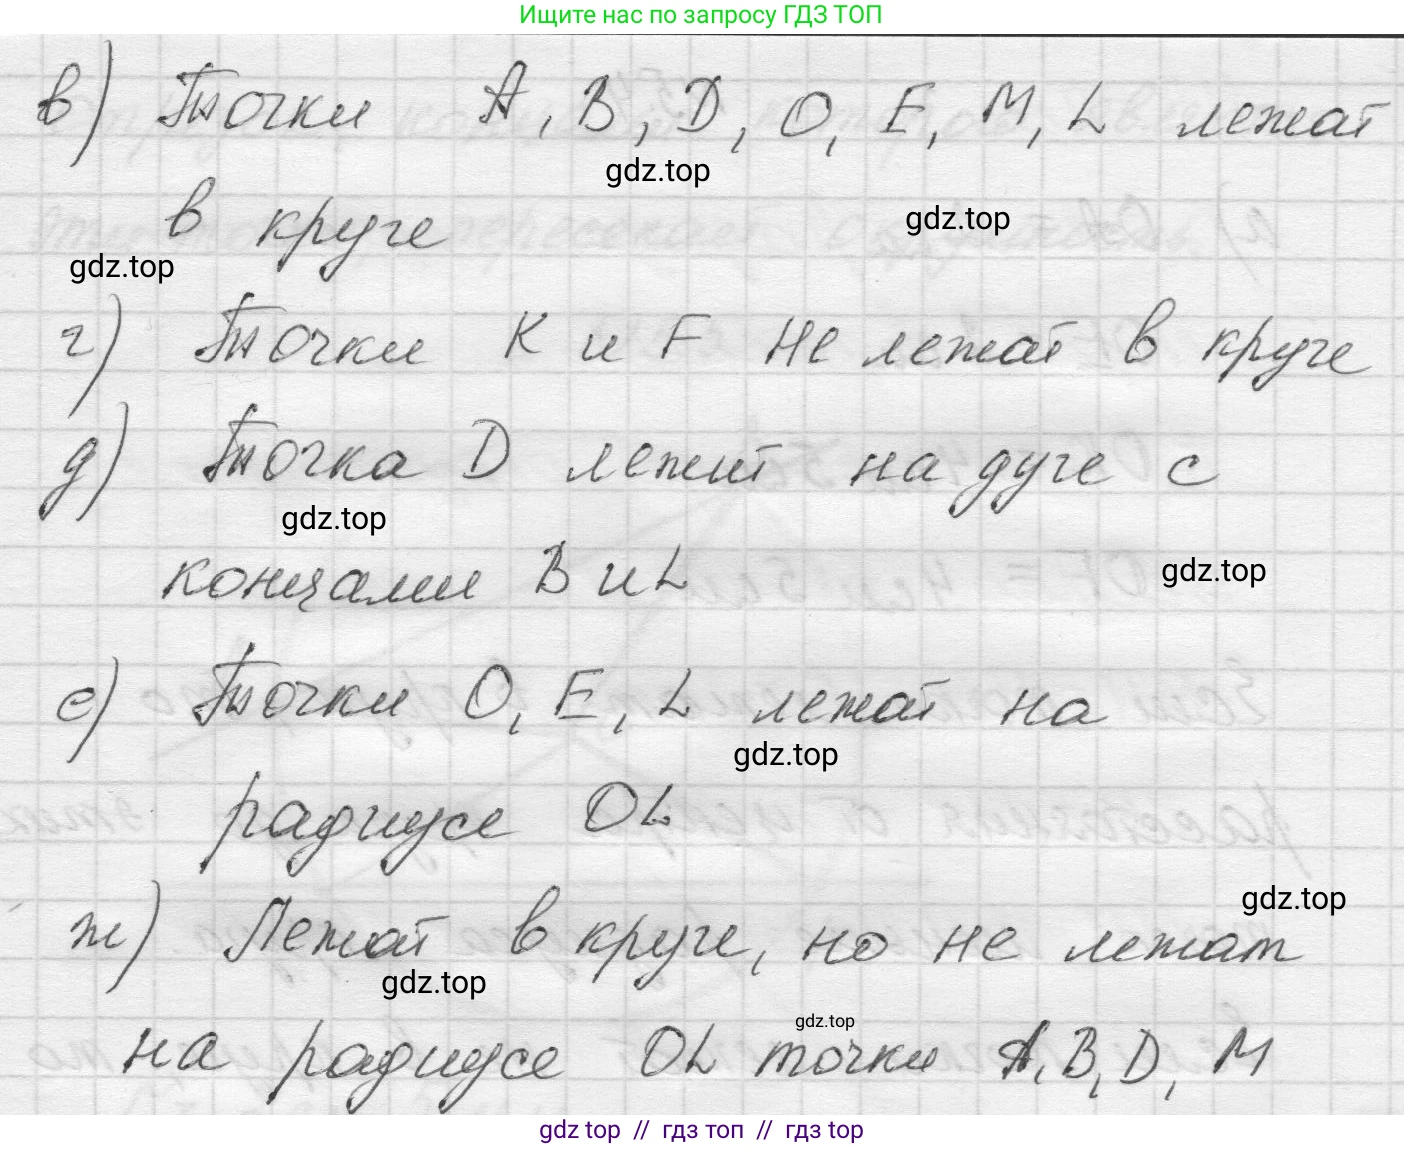 Ищите нас по запросу ГДЗ ТОП
в) Точки A, B, D, O, E, M, L лежат
gdz.top
в круге
gdz.top
gdz.top
г) Точки K и F не лежат в круге
д) Точка D лежит на дуге с
gdz.top
концами B и L
gdz.top
е) Точки O, E, L лежат на
gdz.top
радиусе OL
gdz.top
ж) Лежат в круге, но не лежат
gdz.top
gdz.top
на радиусе OL точки A, B, D, M
gdz top // гдз топ // гдз top